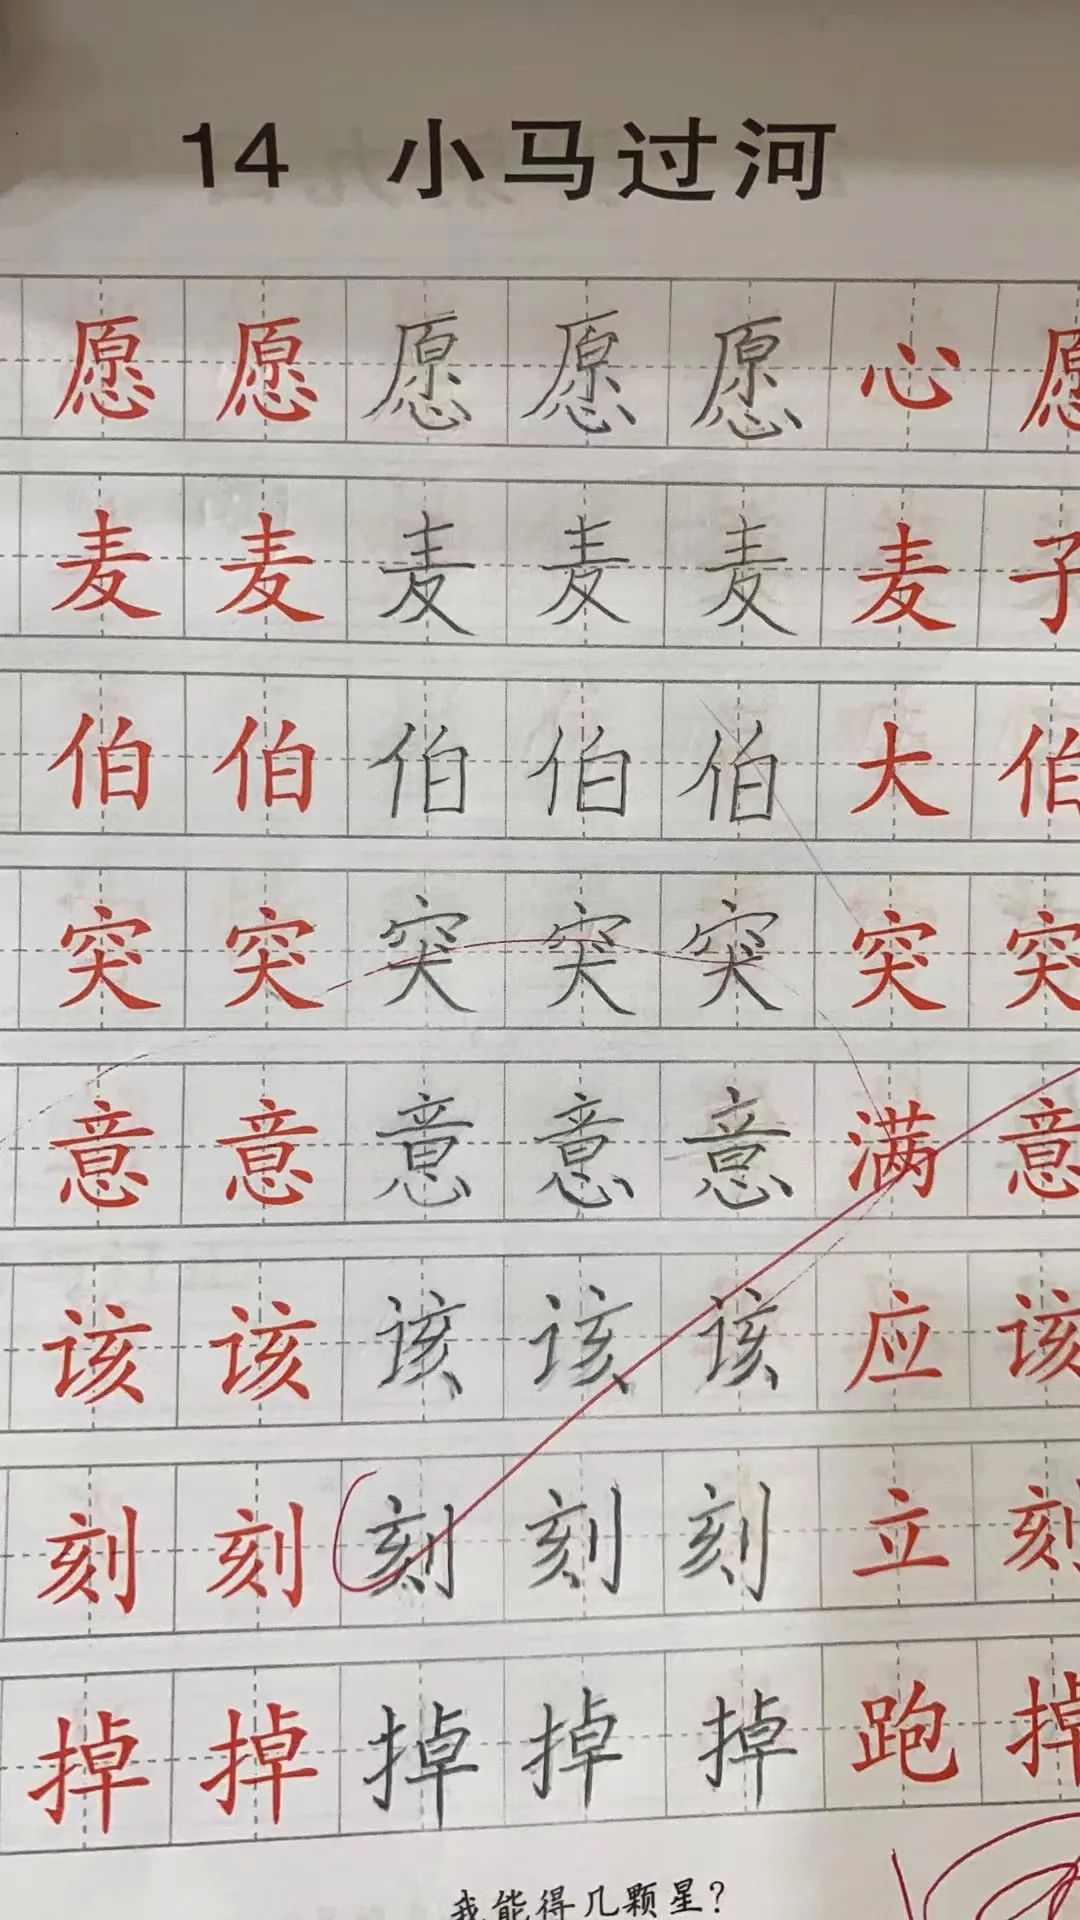 14 小马过河
愿愿愿愿愿心愿
麦麦麦麦麦麦子
伯伯伯伯伯大伯
突突突突突突突
意意意意意满意
该该该该该应该
刻刻刻刻刻立刻
掉掉掉掉掉跑掉
我能得几颗星?